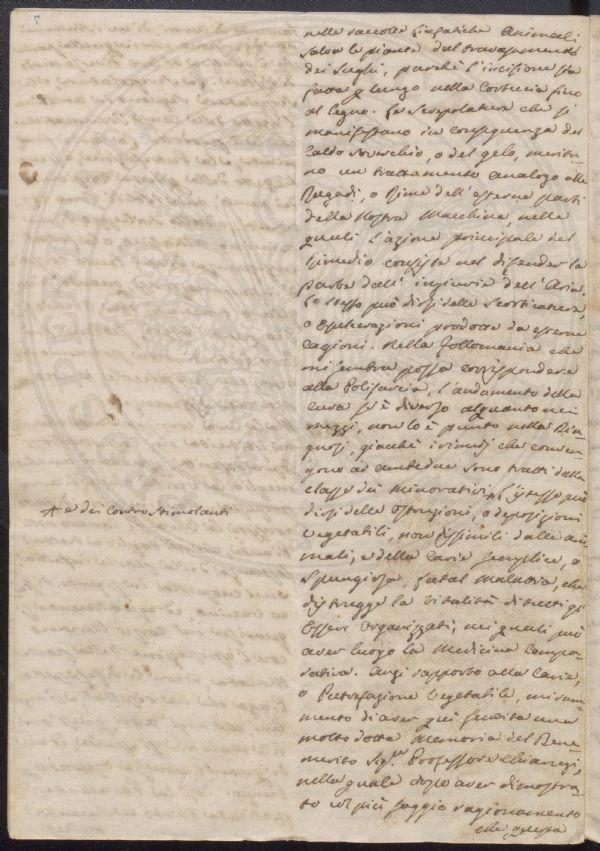 7
nelle raccolte linfatiche Animali:
salva le piante dal travasamento
dei sughi, purchè l'incisione sia
fatta p lungo nella Corteccia fino
al legno. La Screpolatura che si
manifestano in conseguenza del
Caldo soverchio, o del gelo, merita-
no un trattamento analogo alle
Ragadi, o Rime dell'esterne parti
della Nostra Macchina, nelle
quali l'azione principale del
rimedio consiste nel difender la
parte dall'ingiuria dell'Aria.
Lo stesso può dirsi delle Scorticature,
o Esulcerazioni prodotte da esterne
cagioni. Nella follomania che
mi sembra possa corrispondere
alla Polisarcia, l'andamento della
Cura se è diverso alquanto nei
mezzi, non lo è punto nella Dia-
gnosi, giacchè i rimedj che conven-
gono ad ambedue sono tratti dalla
classe dei Minorativi + L'istesso può
+ e dei Contro Stimolanti
dirsi delle ostruzioni, o deposizioni
Vegetabili, non dissimili dalle ani-
mali, e della Carie semplice, o
Spungiosa, fatal malattia, che
distrugge la vitalità di tutti gl'
Esseri Organizzati, nei quali può
aver luogo la Medicina Compa-
rativa. Anzi rapporto alla Carie,
o Putrefazione Vegetabile, mi ram-
mento di aver quì sentita una
molto dotta Memoria del Bene-
merito Sigr. Professore Chiarugi,
nella quale dopo aver dimostra-
to col più saggio ragionamento
che questa